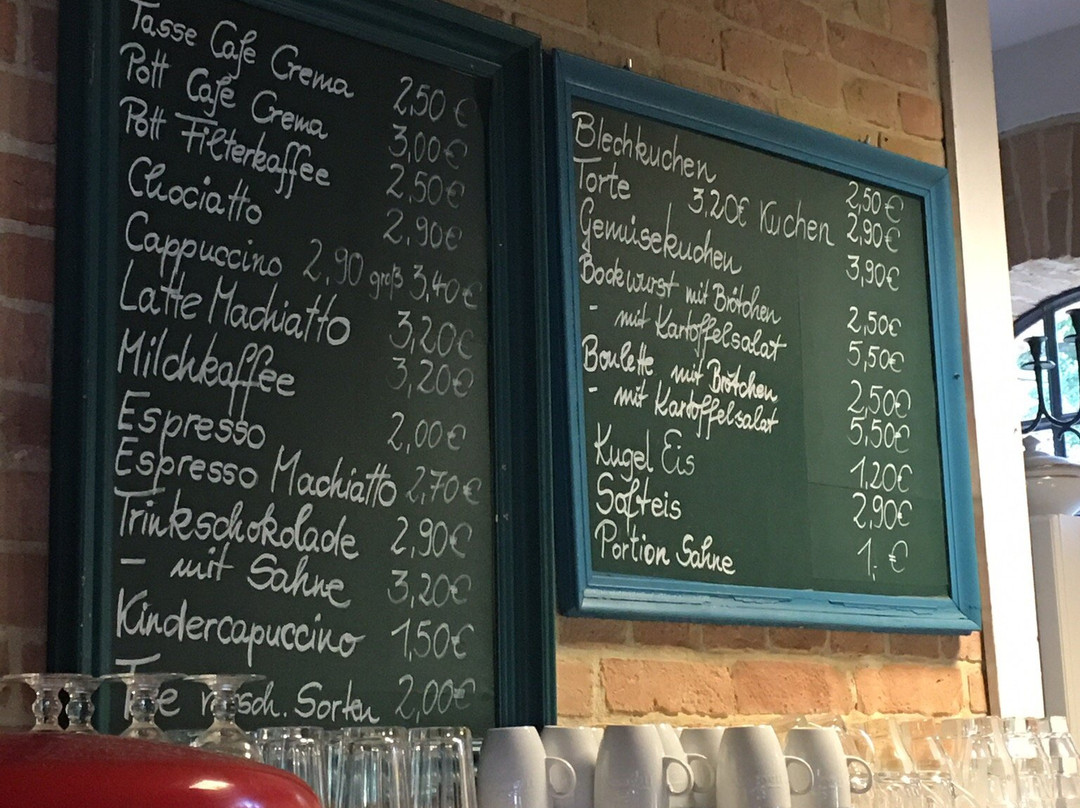 Tasse Cafe Crema 2,50 €
Pott Café Crema 3,00 €
Pott Filterkaffee 2,50 €
Chociatto 2,90€
Cappuccino 2,90 groß 3,40€
Latte Machiatto 3,20€
Milchkaffee 3,20€
Espresso 2,00€
Espresso Machiatto 2,70€
Trinkschokolade 2,90€
- mit Sahne 3,20€
Kindercapuccino 1,50€
Sorten 2,00€
Blechkuchen 2,50€
Torte 3,20€ Kuchen 2,90€
Gemüsekuchen 3,90€
Bockwurst mit Brötchen 2,50€
- mit Kartoffelsalat 5,50€
Boulette mit Brötchen 2,50€
- mit Kartoffelsalat 5,50€
Kugel Eis 1,20€
Softeis 2,90€
Portion Sahne 1,- €